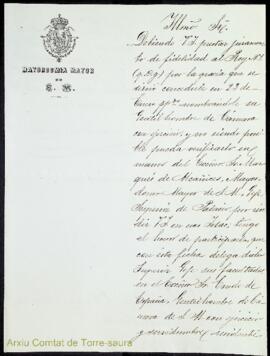 MAYORDOMIA MAYOR
DE
S. M.
Ilmo. Sr.
Debiendo V.I. prestar juramen-
to de fidelidad al Rey N. S.
(q. D. g.) por la gracia que se
dignó concederle en 23 de
Enero ppdo nombrandole su
Gentil hombre de Camara
con ejercicio, y no siendo posi-
ble pueda verificarlo en
manos del Excmo. Sr. Mar-
qués de Alcañices, Mayor-
domo Mayor de S. M. Gefe
Superior de Palacio por resi-
dir V.I. en esas Islas, tengo
el honor de participarle, que
con esta fecha delega dicho
Superior Gefe sus facultades
en el Excmo. Sr. Conde de
España, Gentilhombre de Cá-
mara de S. M. con ejercicio
y servidumbre,
Arxiu Comtat de Torre-saura